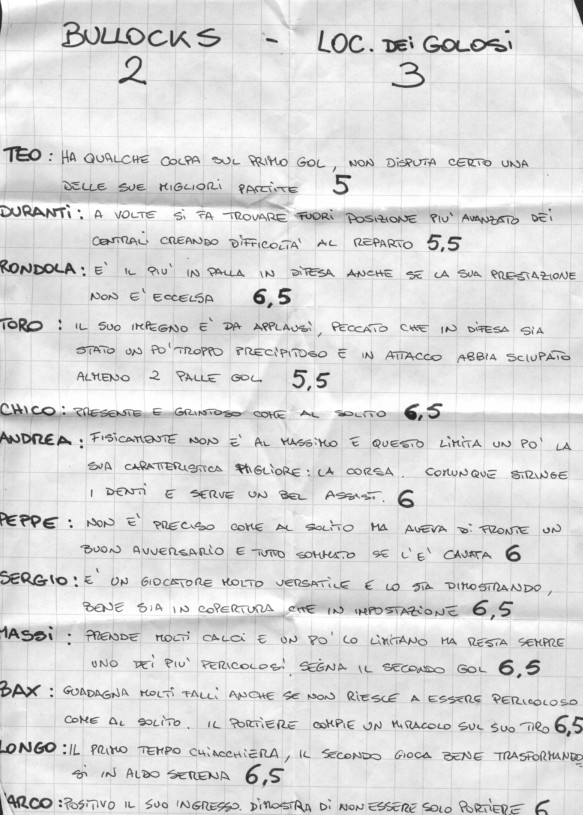 BULLOCKS - LOC. DEI GOLOSI
2 3
TEO: HA QUALCHE COLPA SUL PRIMO GOL, NON DISPUTA CERTO UNA
DELLE SUE MIGLIORI PARTITE 5
DURANTI: A VOLTE SI FA TROVARE FUORI POSIZIONE PIU' AVANZATO DEI
CENTRALI CREANDO DIFFICOLTA' AL REPARTO 5,5
RONDOLA: E' IL PIU' IN PALLA IN DIFESA ANCHE SE LA SUA PRESTAZIONE
NON E' ECCELSA 6,5
TORO: IL SUO IMPEGNO E' DA APPLAUSI, PECCATO CHE IN DIFESA SIA
STATO UN PO' TROPPO PRECIPITOSO E IN ATTACCO ABBIA SCIUPATO
ALMENO 2 PALLE GOL. 5,5
CHICO: PRESENTE E GRINTOSO COME AL SOLITO 6,5
ANDREA: FISICAMENTE NON E' AL MASSIMO E QUESTO LIMITA UN PO' LA
SUA CARATTERISTICA MIGLIORE: LA CORSA. COMUNQUE STRINGE
I DENTI E SERVE UN BEL ASSIST. 6
PEPPE: NON E' PRECISO COME AL SOLITO MA AVEVA DI FRONTE UN
BUON AVVERSARIO E TUTTO SOMMATO SE L'E' CAVATA 6
SERGIO: E' UN GIOCATORE MOLTO VERSATILE E LO STA DIMOSTRANDO,
BENE SIA IN COPERTURA CHE IN IMPOSTAZIONE 6,5
MASSI: PRENDE MOLTI CALCI E UN PO' LO LIMITANO MA RESTA SEMPRE
UNO DEI PIU' PERICOLOSI. SEGNA IL SECONDO GOL 6,5
BAX: GUADAGNA MOLTI FALLI ANCHE SE NON RIESCE A ESSERE PERICOLOSO
COME AL SOLITO. IL PORTIERE COMPIE UN MIRACOLO SUL SUO TIRO 6,5
LONGO: IL PRIMO TEMPO CHIACCHIERA, IL SECONDO GIOCA BENE TRASFORMANDO
SI IN ALDO SERENA 6,5
MARCO: POSITIVO IL SUO INGRESSO. DIMOSTRA DI NON ESSERE SOLO PORTIERE 6